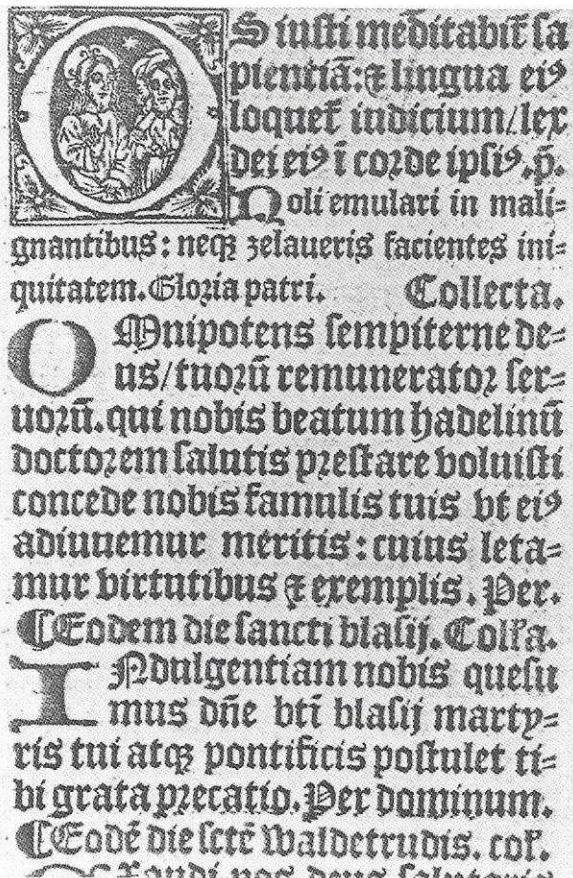 OS iusti meditabit̄ sa
pientiā: ⁊ lingua eiꝰ
loquet̄ indicium/lex
dei eiꝰ ī corde ipsiꝰ. p̄.
Noli emulari in mali⸗
gnantibus: neqꝫ zelaueris facientes ini⸗
quitatem. Gloria patri. Collecta.
OMnipotens sempiterne de⸗
us/tuorū remunerator ser⸗
uorū. qui nobis beatum hadelinū
doctorem salutis prestare voluisti
concede nobis famulis tuis vt eiꝰ
adiuuemur meritis: cuius leta⸗
mur virtutibus ⁊ exemplis. Per.
⸿Eodem die sancti blasij. Coll'a.
INdulgentiam nobis quesu
mus dn̄e bt̄i blasij marty⸗
ris tui atqꝫ pontificis postulet ti⸗
bi grata precatio. Per dominum.
⸿Eodē die sctē Waldetrudis. col'.
EXaudi nos deus salutaris